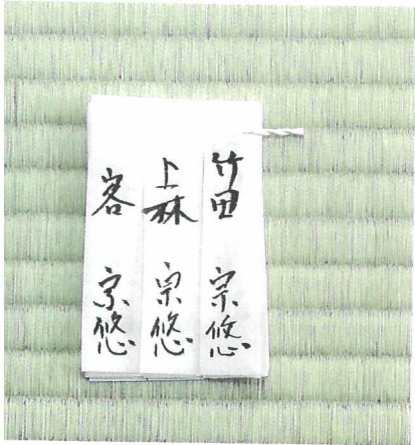 竹田 宗悠
上林 宗悠
客 宗悠